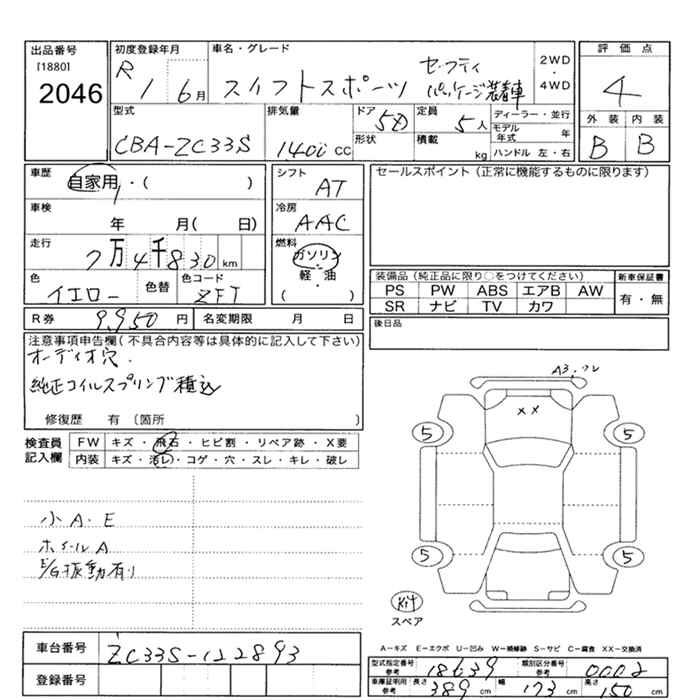 出品番号
[1880]
2046
初度登録年月
R 1 6月
車名・グレード
スイフトスポーツ
セーフティ
パッケージ装着車
2WD
・
4WD
評価点
4
外装 内装
B B
型式
CBA-ZC33S
排気量
1400 cc
ドア
5D
形状
定員
5人
積載
kg
ディーラー・並行
モデル年式 年
ハンドル 左・右
車歴
自家用・( )
車検
年 月( 日)
走行
7万4千830km
色
イエロー
色替
色コード
ZFT
シフト
AT
冷房
AAC
燃料
ガソリン
軽・油
( )
セールスポイント(正常に機能するものに限ります)
装備品(純正品に限り○をつけてください)
PS PW ABS エアB AW
SR ナビ TV カワ
新車保証書
有・無
R券 9,950円
名変期限 月 日
後日品
注意事項申告欄(不具合内容等は具体的に記入して下さい)
オーディオ穴.
純正コイルスプリング積込
修復歴 有 〔箇所 〕
検査員
記入欄
FW キズ・飛石・ヒビ割・リペア跡・X要
内装 キズ・汚レ・コゲ・穴・スレ・キレ・破レ
小A.E
ホイールA
E/G振動有り
A3.ワレ
XX
5 5
5 5
Kit
スペア
A―キズ E―エクボ U―凹み W―補修跡 S―サビ C―腐食 XX―交換済
車台番号 ZC33S-122893
登録番号
型式指定番号
参考
18639
類別区分番号
参考
0002
車庫証明用
参考
長さ 389 cm 幅 173 cm 高さ 150 cm